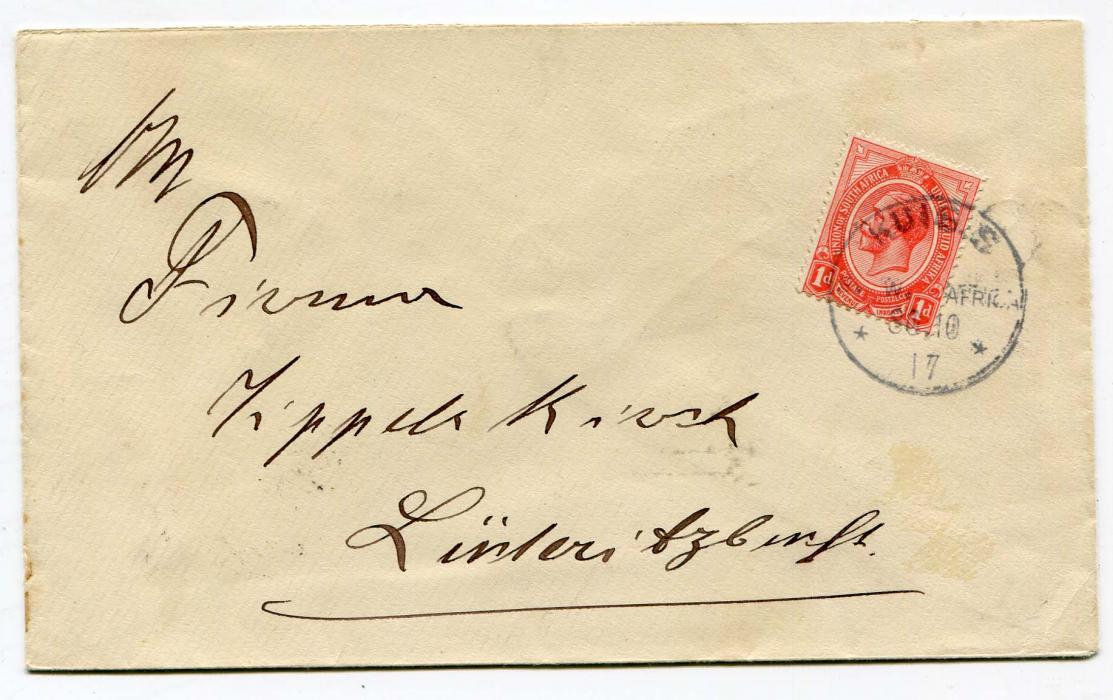 An
Firma
Tippelskirch
Lüderitzbucht.
UNION OF SOUTH AFRICA
UNIE VAN ZUID AFRIKA
POSTAGE POSTZEGEL
REVENUE INKOMST
1d 1d
KUIBIS
AFRICA
30.10
17